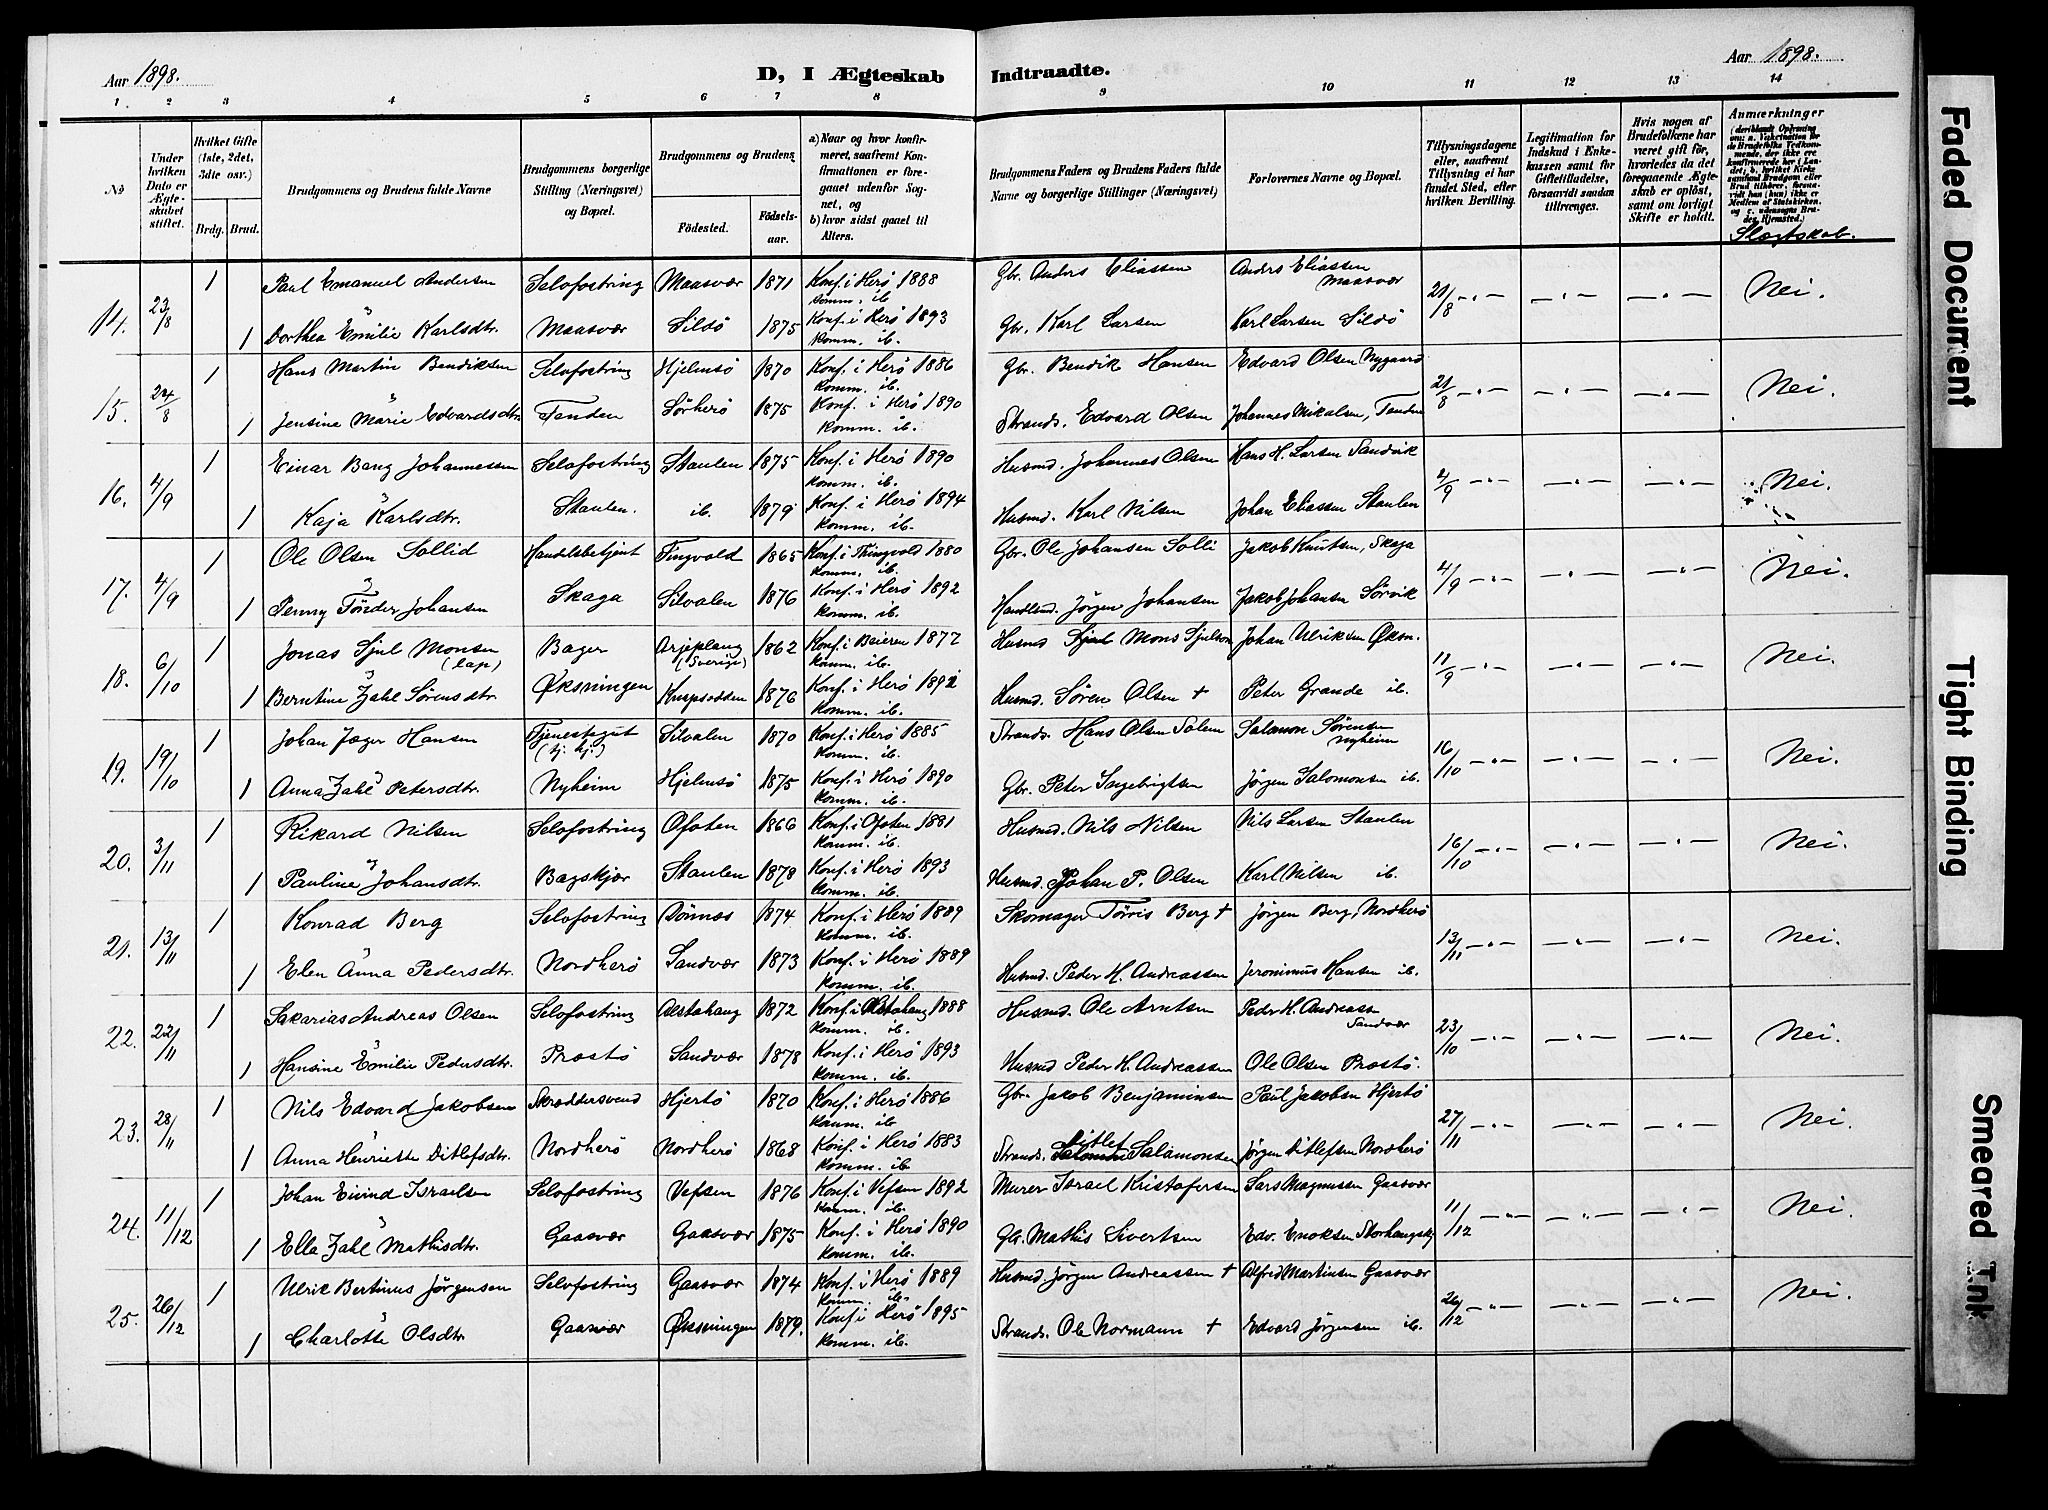 Aar 1898.
D, I Ægteskab Indtraadte.
Aar 1898.
1. 2 3 4 5 6 7 8 9 10 11 12 13 14
No
Under hvilken Dato er Ægteskabet stiftet.
Hvilket Gifte (1ste, 2det, 3die osv.)
Brdg. Brud.
Brudgommens og Brudens fulde Navne
Brudgommens borgerlige Stilling (Næringsvei) og Bopæl.
Brudgommens og Brudens
Födested.
Födselsaar.
a) Naar og hvor konfirmeret, saafremt Konfirmationen er foregaaet udenfor Sognet, og
b) hvor sidst gaaet til Alters.
Brudgommens Faders og Brudens Faders fulde Navne og borgerlige Stillinger (Næringsvei)
Forlovernes Navne og Bopæl.
Tillysningsdagene eller, saafremt Tillysning ei har fundet Sted, efter hvilken Bevilling.
Legitimation for Indskud i Enkekassen samt for Giftetilladelse, forsaavidt saadan tiltrænges.
Hvis nogen af Brudefolkene har været gift før, hvorledes da det foregaaende Ægteskab er opløst, samt om lovligt Skifte er holdt.
Anmærkninger
Slægtskab.
14. 23/8 1 Paul Emanuel Andersen Selvfostring Maasvær 1871 Konf. i Herö 1888 Komm. ib. Gbr. Anders Eliassen Anders Eliassen Maasvær 21/8 — " — — " — — " — Nei.
1 Dorthea Emilie Karlsdtr. Maasvær Sildö 1875 Konf. i Herö 1893 Komm. ib. Gbr. Karl Larsen Karl Larsen Sildö
15. 24/8 1 Hans Martin Bendiksen Selvfostring Hjelmsö 1870 Konf. i Herö 1886 Komm. ib. Gbr. Bendik Hansen Edvard Olsen Nygaard 21/8 — " — — " — — " — Nei.
1 Jensine Marie Edvardsdtr. Tenden Sörherö 1875 Konf. i Herö 1890 Komm. ib. Strands. Edvard Olsen Johannes Mikalsen, Tenden
16. 4/9 1 Einar Bang Johannessen Selvfostring Staulen 1875 Konf. i Herö 1890 Komm. ib. Husmd. Johannes Olsen Hans H. Larsen Sandvik 4/9 — " — — " — — " — Nei.
1 Kaja Karlsdtr. Staulen. ib. 1879 Konf. i Herö 1894 Komm. ib. Husmd. Karl Nilsen Johan Eliassen Staulen
17. 4/9 1 Ole Olsen Sollid Handelsbetjent Tingvold 1865 Konf. i Thingvold 1880 Komm. ib. Gbr. Ole Johansen Solli Jakob Knutsen, Skaga 4/9 — " — — " — — " — Nei.
1 Penny Tönder Johansen Skaga Silvalen 1876 Konf. i Herö 1892 Komm. ib. Handlsmd. Jörgen Johansen Jakob Johansen Sörvik
18. 6/10 1 Jonas Sjul Monsen (lap) Bager Arjeplaug (Sverige) 1862 Konf. i Beieren 1877 Komm. ib. Husmd Mons Sjulson Johan Ulriksen Øksn. 11/9 — " — — " — — " — Nei.
1 Berntine Zahl Sörensdtr. Øksningen 1876 Konf. i Herö 1892 Komm. ib. Husmd. Sören Olsen + Peter Grande ib.
19. 19/10 1 Johan Jæger Hansen Tjenestegut (tj. hj.) Silvalen 1870 Konf. i Herö 1885 Komm. ib. Strands. Hans Olsen Salomon Sörensen Nyheim 16/10 — " — — " — — " — Nei.
1 Anna Zahl Petersdtr. Nyheim Hjelmsö 1875 Konf. i Herö 1890 Komm. ib. Gbr. Peter Ingebrigtsen Jörgen Salomonsen ib.
20. 3/11 1 Rikard Nilsen Selvfostring Ofoten 1866 Konf. i Ofoten 1881 Komm. ib. Husmd. Nils Nilsen Nils Larsen Staulen 16/10 — " — — " — — " — Nei.
1 Pauline Johansdtr. Bagskjær Staulen 1878 Konf. i Herö 1893 Komm. ib. Husmd. Johan P. Olsen Karl Nilsen ib.
21. 13/11 1 Konrad Berg Selvfostring Dönnes 1874 Konf. i Herö 1889 Komm. ib. Skomager Törris Berg + Jörgen Berg, Nordherö 13/11 — " — — " — — " — Nei.
1 Elen Anna Pedersdtr. Nordherö Sandvær 1873 Konf. i Herö 1889 Komm. ib. Husmd. Peder H. Andreassen Jeronimus Hansen ib.
22. 22/11 1 Sakarias Andreas Olsen Selvfostring Alstahaug 1872 Konf. i Alstahaug 1888 Komm. ib. Husmd. Ole Arntsen Peder H. Andreass. Sandvær 23/10 — " — — " — — " — Nei.
1 Hansine Emilie Pedersdtr. Præstö Sandvær 1878 Konf. i Herö 1893 Komm. ib. Husmd Peder H. Andreassen Ole Olsen Præstö.
23. 28/11 1 Nils Edvard Jakobsen Skræddersvend Hjertö 1870 Konf. i Herö 1886 Komm. ib. Gbr. Jakob Benjaminsen Paul Jakobsen Hjertö 27/11 — " — — " — — " — Nei.
1 Anna Henriette Ditlefsdtr. Nordherö Nordherö 1868 Konf. i Herö 1883 Komm. ib. Strands. Ditlef Salamonsen Jörgen Ditlefsen Nordherö
24. 11/12 1 Johan Eivind Israelsen Selvfostring Vefsen 1876 Konf. i Vefsen 1892 Komm. ib. Murer Israel Kristofersen Lars Magnussen Gaasvær 11/12 — " — — " — — " — Nei.
1 Ella Zahl Mathisdtr. Gaasvær Gaasvær 1875 Konf. i Herö 1890 Komm. ib. Gbr. Mathis Sivertsen Edv. Enoksen
25. 26/12 1 Ulrik Bertinus Jörgensen Selvfostring Gaasvær 1874 Konf. i Herö 1889 Komm. ib. Husmd. Jörgen Andreassen + Alfred Martinsen Gaasvær 26/12 — " — — " — — " — Nei.
1 Charlotte Olsdtr. Gaasvær Øksningen 1879. Konf. i Herö 1895 Komm. ib. Strands. Ole Normann + Edvard Jörgensen ib.
Faded Document
Tight Binding
Smeared Ink